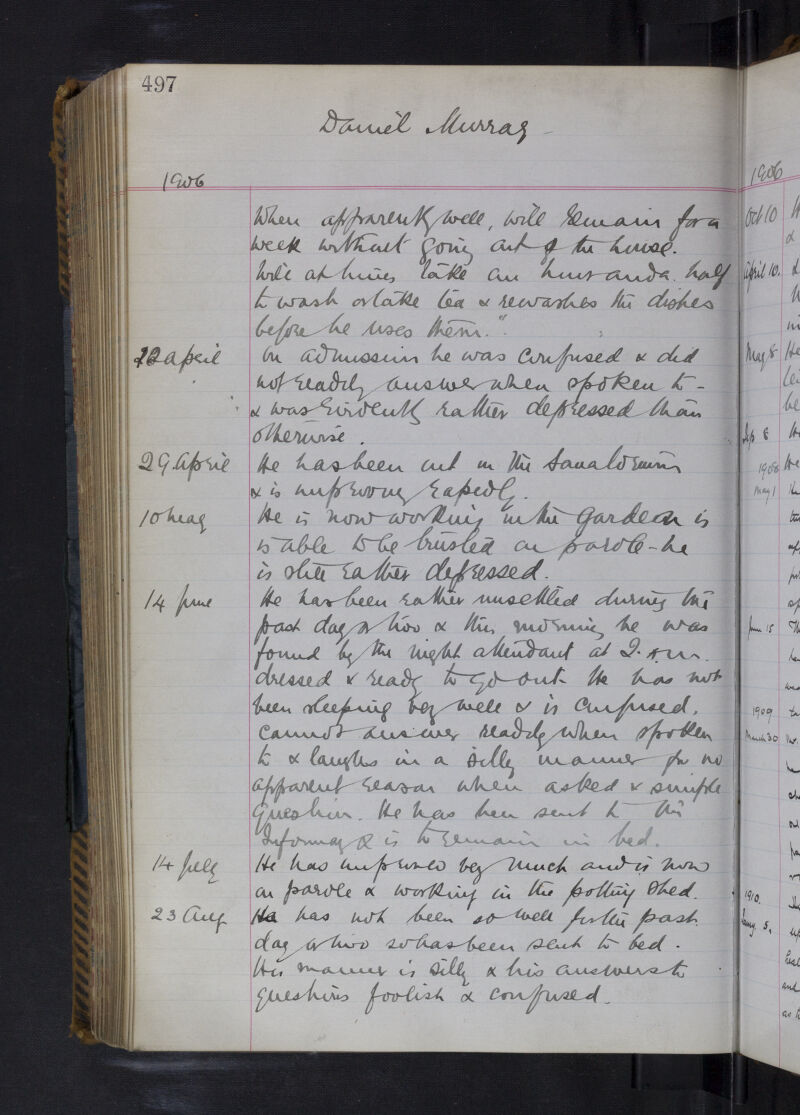 497
Daniel Murray -
1906
When apparently well, will remain for a
week without going out of the house.
Will at times take an hour and a half
to wash or take tea & rewashes the dishes
before he uses them."
12 April On admission he was confused & did
not readily answer when spoken to -
& was evidently rather depressed than
otherwise.
29 April He has been out in the Sanatorium
& is improving rapidly.
10 May He is now working in the Garden is
is able to be trusted on parole - he
is still rather depressed.
14 June He has been rather unsettled during the
past day or two & this morning he was
found by the night attendant at 2. a.m.
dressed & ready to go out. He has not
been sleeping very well & is confused.
Cannot answer readily when spoken
to & laughs in a silly manner for no
apparent reason when asked a simple
Question. He has been sent to the
Infirmary & is to remain in bed.
14 July He has improved very much and is now
on parole & working in the potting shed.
23 Aug He has not been so well for the past
day or two so has been sent to bed.
His manner is silly & his answers to
questions foolish & confused.
1906
Oct 10
April 10.
May 8 He
Sep 8 He
1908 He
May 1
June 15 Th
1909
March 30
1910.